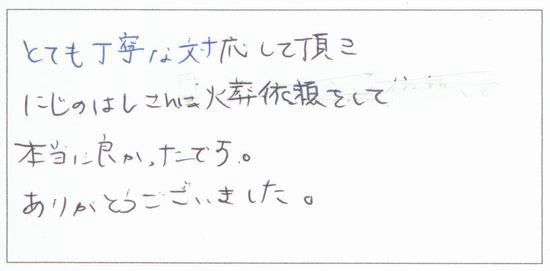 とても丁寧な対応して頂き
にじのはしさんに火葬依頼をして
本当に良かったです。
ありがとうございました。